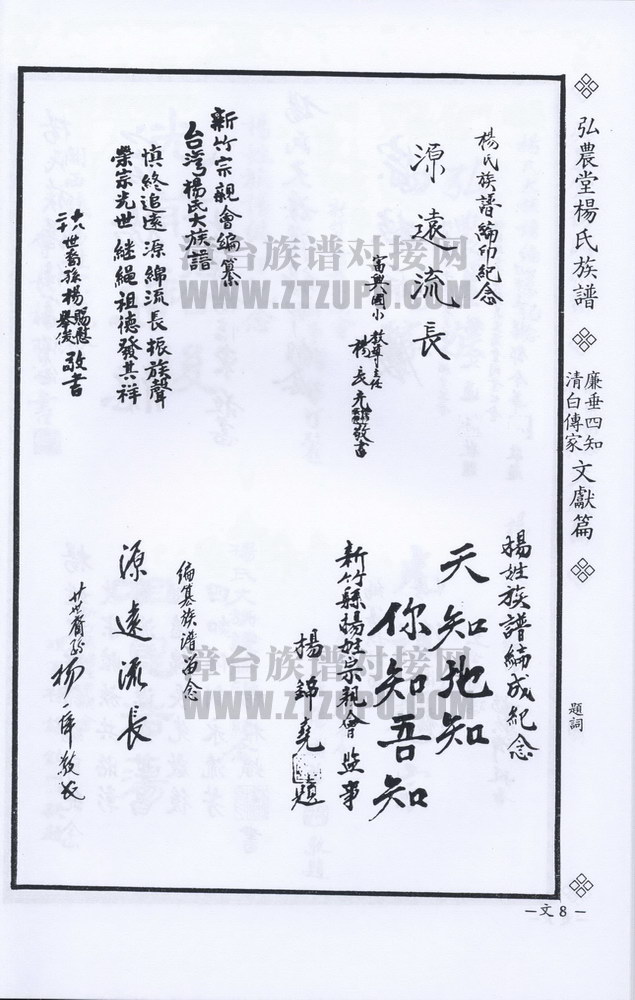 弘農堂楊氏族譜
廉垂四知
清白傳家
文獻篇
題詞
楊氏族譜編印紀念
源遠流長
富興國小 教導主任
楊長元 敬書
新竹宗親會編纂
台灣楊氏大族譜
慎終追遠源綿流長振族聲
榮宗光世継繩祖德發其祥
世裔孫楊
敬書
楊姓族譜編成紀念
天知地知
你知吾知
新竹縣楊姓宗親會監事
楊錦堯 題
編纂族谱留念
源遠流長
廿世裔孙 楊 敬
漳台族谱对接网
WWW.ZTZUPU.COM
漳台族谱对接网
WWW.ZTZUPU.COM
－文8－